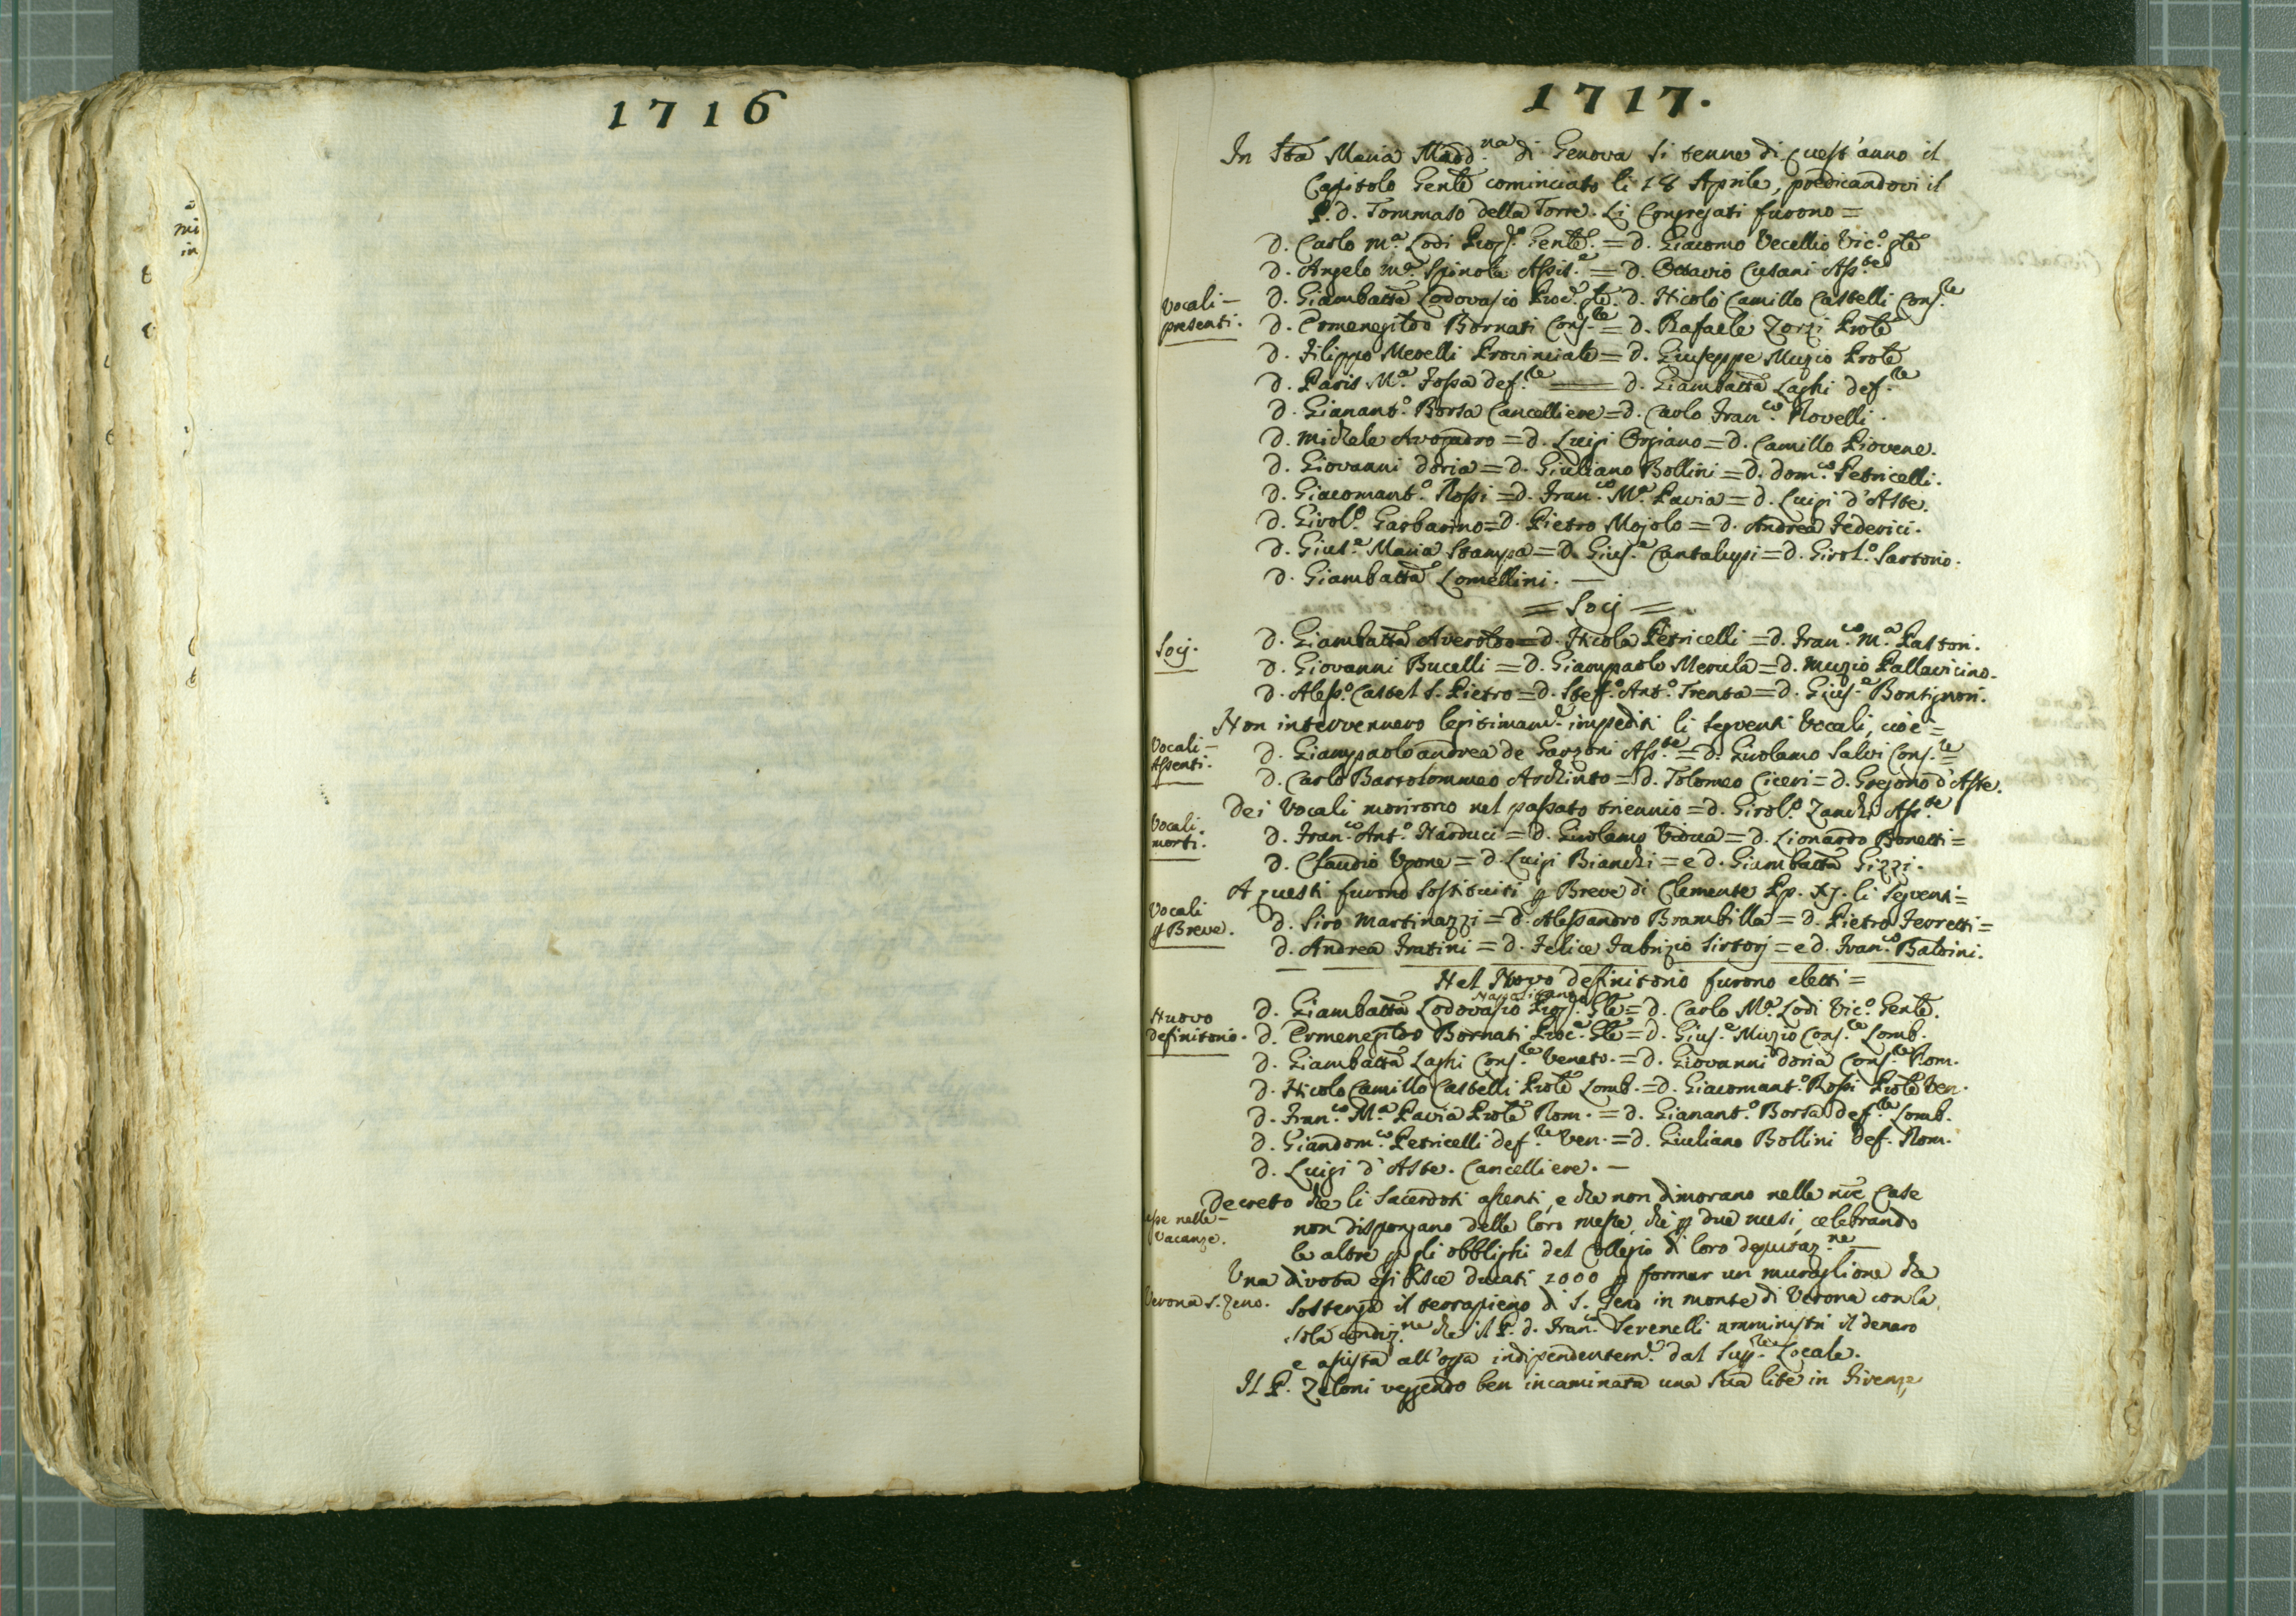 1716
mi
in
1717.
In Sta Maria Madd.na di Genova si tenne di quest'anno il
Capitolo Genle cominciato li 18 Aprile, predicandovi il
P. D. Tommaso della Torre. Li Congregati furono =
D. Carlo M.a Lodi Prep.o Genle. = D. Giacomo Vecellio Vic.o gle
D. Angelo M.a Spinola Assis.e = D. Ottavio Cusani Ass.te
Vocali –
presenti.
D. Giambatta Lodovasio Proc.e gle. D. Nicolò Camillo Castelli Cons.re
D. Ermenegildo Bornati Cons.re = D. Rafaele Zorzi Prole
D. Filippo Merelli Provinciale = D. Giuseppe Muzio Prole
D. Paris M.a Fossa def.re — D. Giambatta Laghi def.re
D. Gianant.o Borsa Cancelliere = D. Carlo Fran.co Novelli.
D. Michele Avogadro = D. Luigi Orgiano = D. Camillo Piovene.
D. Giovanni Doria = D. Giuliano Bollini = D. Dom.co Petricelli.
D. Giacomant.o Rossi = D. Fran.co M.a Pavia = D. Luigi d'Aste.
D. Girol.o Garbarino = D. Pietro Mojolo = D. Andrea Federici.
D. Gius.e Maria Stampa = D. Gius.e Cantalupi = D. Girol.o Sartorio.
D. Giambatta Lomellini. —
= Socj =
Socj.
D. Giambatta Averoldo = D. Nicola Petricelli = D. Fran.co M.a Pastori.
D. Giovanni Bucelli = D. Giampaolo Merula = D. Muzio Pallavicino.
D. Aless.o Castel S. Pietro = D. Stef.o Ant.o Trenta = D. Gius.e Bontignori.
Non intervennero legitimam.e impediti li seguenti Vocali, cioè =
Vocali –
Assenti.
D. Giampaolo andrea de Garzoni Ass.te = D. Girolamo Salvi Cons.re =
D. Carlo Bartolommeo Archinto = D. Tolomeo Ciceri = D. Gregorio d'Aste.
Dei Vocali morirono nel passato triennio = D. Girol.o Zanchi Ass.te
Vocali.
morti.
D. Fran.co Ant.o Narduci = D. Girolamo Vidua = D. Lionardo Bonetti =
D. Claudio Ugone = D. Luigi Bianchi = e D. Giambatta Gizzi.
A questi furono sostituiti p Breve di Clemente Pp. XJ. li seguenti =
Vocali
p Breve.
D. Siro Martinazzi = D. Alessandro Brambilla = D. Pietro Ferretti =
D. Andrea Fratini = D. Felice Fabrizio Sirtorj = e D. Fran.co Baldini.
Nel Novo definitorio furono eletti =
Napolitano
Nuovo
definitorio.
D. Giambatta Lodovasio Prep. Gle = D. Carlo M.a Lodi Vic.o Genle.
D. Ermenegildo Bornati Proc.e Gle = D. Gius.e Muzio Cons.re Lomb.
D. Giambatta Laghi Cons.re Veneto. = D. Giovanni Doria Cons.re Rom.
D. Nicolo Camillo Castelli Prole Lomb. = D. Giacomant.o Rossi Prole Ven.
D. Fran.co M.a Pavia Prole Rom. = D. Gianant.o Borsa def.re Lomb.
D. Giandom.co Petricelli def.re Ven. = D. Giuliano Bollini def. Rom.
D. Luigi d'Aste. Cancelliere. —
Decreto che li Sacerdoti assenti, e che non dimorano nelle nre Case
nelle –
Vacanze.
non dispongano delle loro messe, che p due mesi, celebrando
le altre p gli obblighi del Collegio di loro deputaz.ne —
Una divota esibisce ducati 2000 p formar un muraglione che
Verona S. Zeno.
sostenga il terrapieno di S. Zeno in monte di Verona con la
sola condiz.ne che il P. D. Fran.co Serenelli amministri il denaro
e assista all'opra indipendentem.e dal Sup.re Locale.
Il P. Zeloni veggendo ben incaminata una sua lite in Firenze